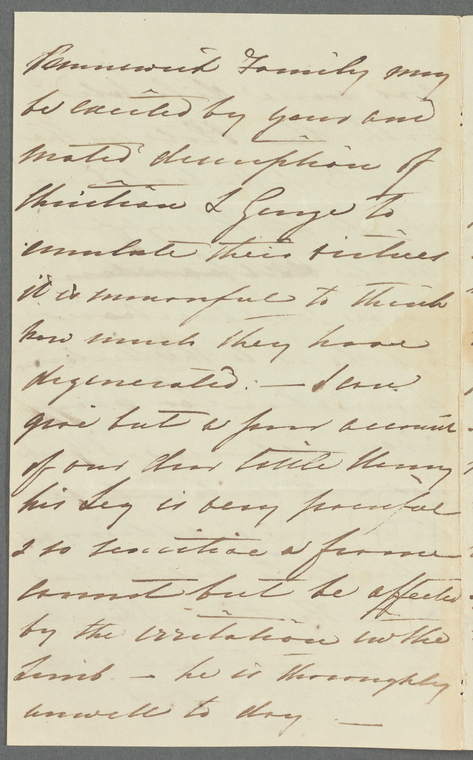 Brunswick Family may
be excited by your ani
mated description of
Christian & George to
emulate their virtues
it is mournful to think
how much they have
degenerated. — I can
give but a poor account
of our dear little Henry
his Leg is very painful
& so sensitive a frame
cannot but be affected
by the irritation in the
Limb — he is thoroughly
unwell to day —